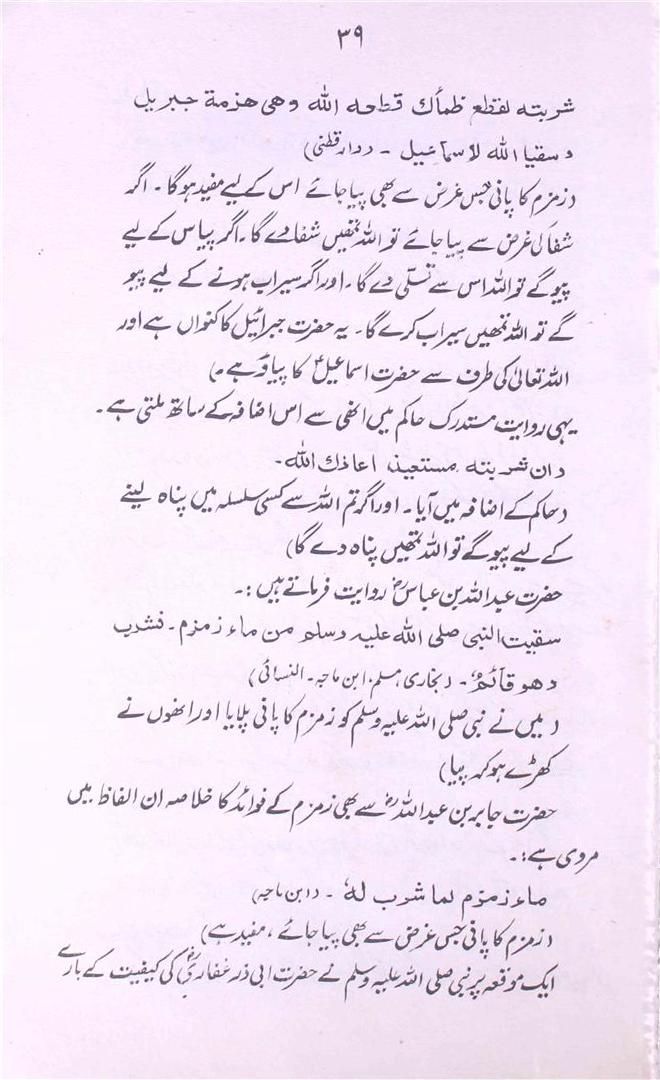 ۳۹
شربته لقطع ظمأك قطعه الله وهی هزمة جبریل
وسقیا الله لاسماعیل ۔ (دارقطنی)
(زمزم کا پانی جس غرض سے بھی پیا جائے اس کے لیے مفید ہوگا۔ اگر
شفا کی غرض سے پیا جائے تو اللہ تمھیں شفا دے گا۔ اگر پیاس کے لیے
پیو گے تو اللہ اس سے تسلّی دے گا۔ اور اگر سیراب ہونے کے لیے پیو
گے تو اللہ تمھیں سیراب کرے گا۔ یہ حضرت جبرائیل کا کنواں ہے اور
اللہ تعالیٰ کی طرف سے حضرت اسماعیلؑ کا پیاؤ ہے۔)
یہی روایت مستدرک حاکم میں انھی سے اس اضافہ کے ساتھ ملتی ہے۔
وان شربته مستعیذ اعاذك الله۔
(حاکم کے اضافہ میں آیا۔ اور اگر تم اللہ سے کسی سلسلہ میں پناہ لینے
کے لیے پیو گے تو اللہ تمھیں پناہ دے گا)
حضرت عبداللہ بن عباسؓ روایت فرماتے ہیں:۔
سقیت النبی صلی الله علیه وسلم من ماء زمزم۔ فشرب
وهو قائمٌ۔ (بخاری، مسلم، ابن ماجہ۔ النسائی)
(میں نے نبی صلی اللہ علیہ وسلم کو زمزم کا پانی پلایا اور انھوں نے
کھڑے ہو کر پیا)
حضرت جابر بن عبداللہؓ سے بھی زمزم کے فوائد کا خلاصہ ان الفاظ میں
مروی ہے:۔
ماء زمزم لما شرب لهٗ ۔ (ابن ماجہ)
(زمزم کا پانی جس غرض سے بھی پیا جائے، مفید ہے)
ایک موقعہ پر نبی صلی اللہ علیہ وسلم نے حضرت ابی ذر غفاریؓ کی کیفیت کے بارے